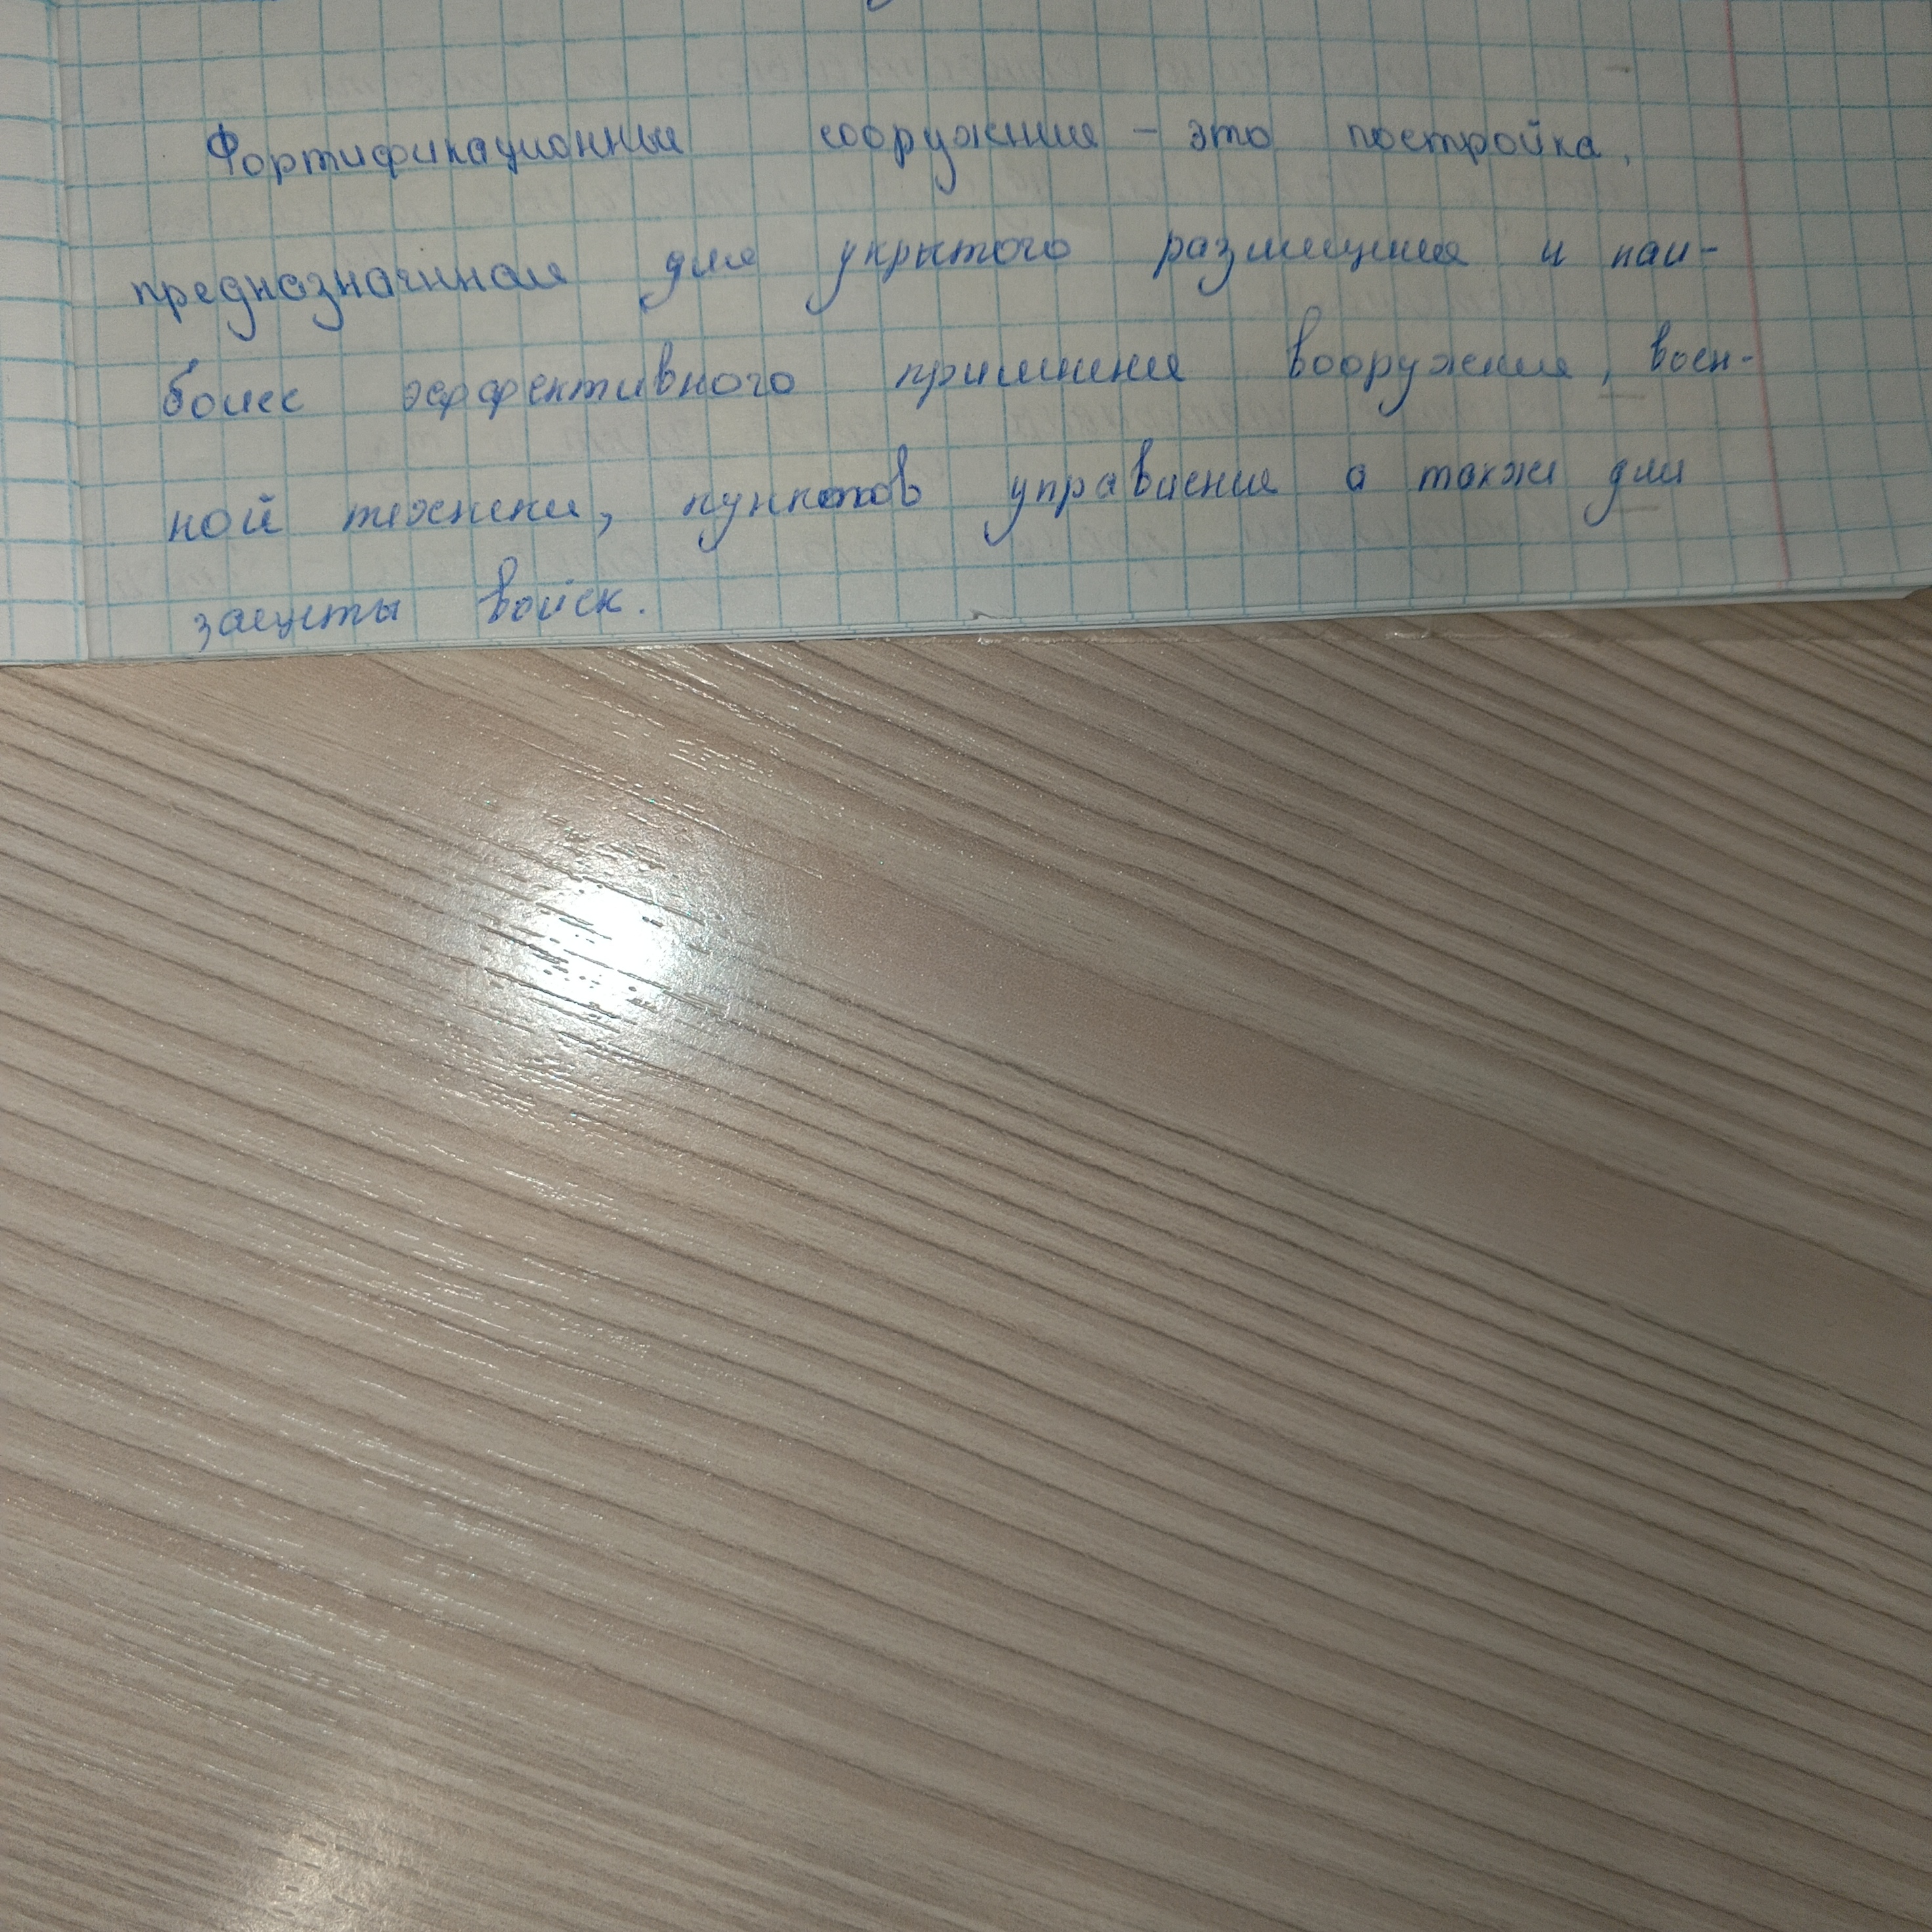 Фортификационные сооружения – это постройка,
предназначенная для укрытого размещения и наи-
более эффективного применения вооружения, воен-
ной техники, пунктов управления а также для
защиты войск.